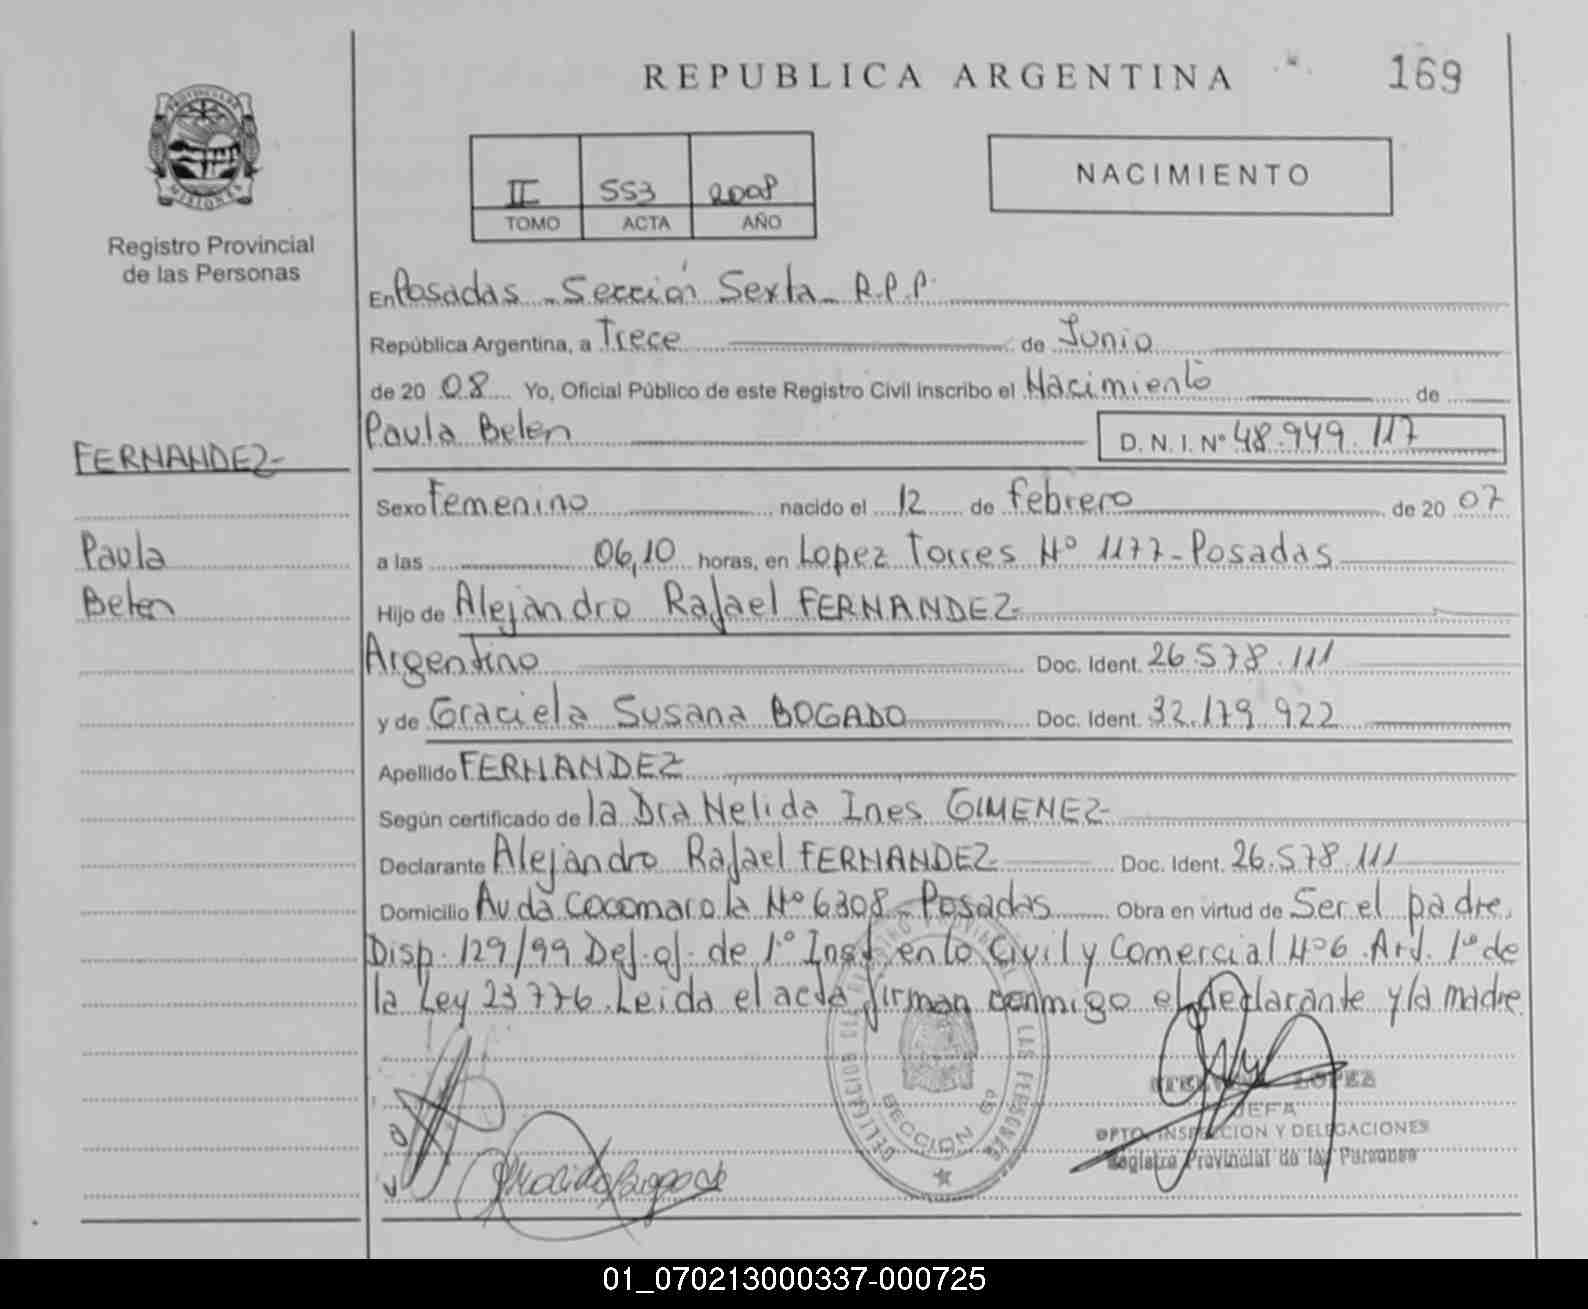 REPUBLICA ARGENTINA
169
PROVINCIA DE
MISIONES
Registro Provincial
de las Personas
II 553 2008
TOMO ACTA AÑO
NACIMIENTO
En Posadas - Sección Sexta - R.P.P.
República Argentina, a Trece de Junio
de 20 08 Yo, Oficial Público de este Registro Civil inscribo el Nacimiento de
Paula Belen D. N. I. Nº 48.949.117
FERNANDEZ-
Sexo Femenino nacido el 12 de febrero de 20 07
Paula
a las 06,10 horas, en Lopez Torres Nº 1177-Posadas
Belen
Hijo de Alejandro Rafael FERNANDEZ-
Argentino Doc. Ident. 26.578.111
y de Graciela Susana BOGADO Doc. Ident. 32.179.922
Apellido FERNANDEZ
Según certificado de la Dra Nelida Ines GIMENEZ-
Declarante Alejandro Rafael FERNANDEZ Doc. Ident. 26.578.111
Domicilio Avda Cocomarola Nº 6308-Posadas Obra en virtud de Ser el padre.
Disp. 129/99 Def. of. de 1º Inst. en lo Civil y Comercial Nº6. Art. 1º de
la Ley 23776. Leida el acta firman conmigo el declarante y la madre
DELEGACION REGISTRO PROVINCIAL DE LAS PERSONAS
SECCION 6º
LOPEZ
JEFA
DPTO. INSPECCION Y DELEGACIONES
Registro Provincial de las Personas
01_070213000337-000725